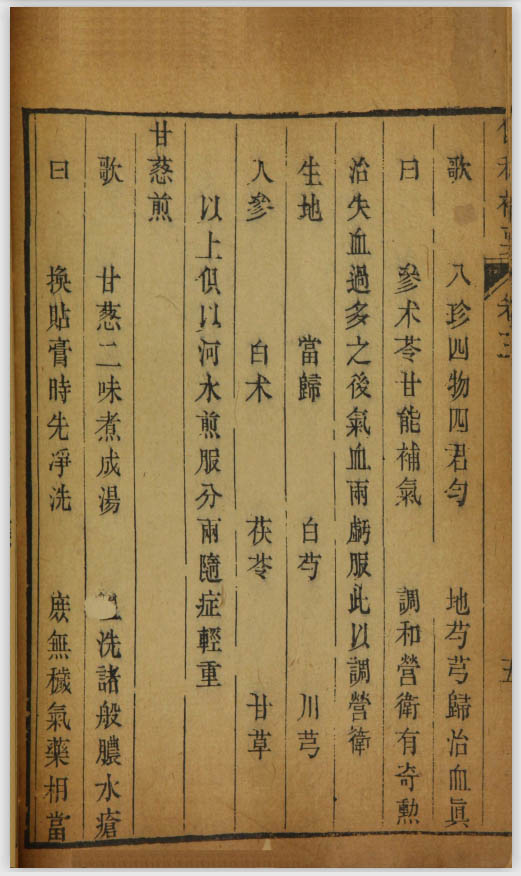 卷三 五
歌 八珍四物四君勻 地芍芎歸治血眞
曰 參术苓甘能補氣 調和營衛有奇勲
治失血過多之後氣血兩虧服此以調營衛
生地 當歸 白芍 川芎
人參 白术 茯苓 甘草
以上俱以河水煎服分兩隨症輕重
甘葱煎
歌 甘葱二味煮成湯 洗諸般膿水瘡
曰 換貼膏時先凈洗 庻無穢氣藥相當